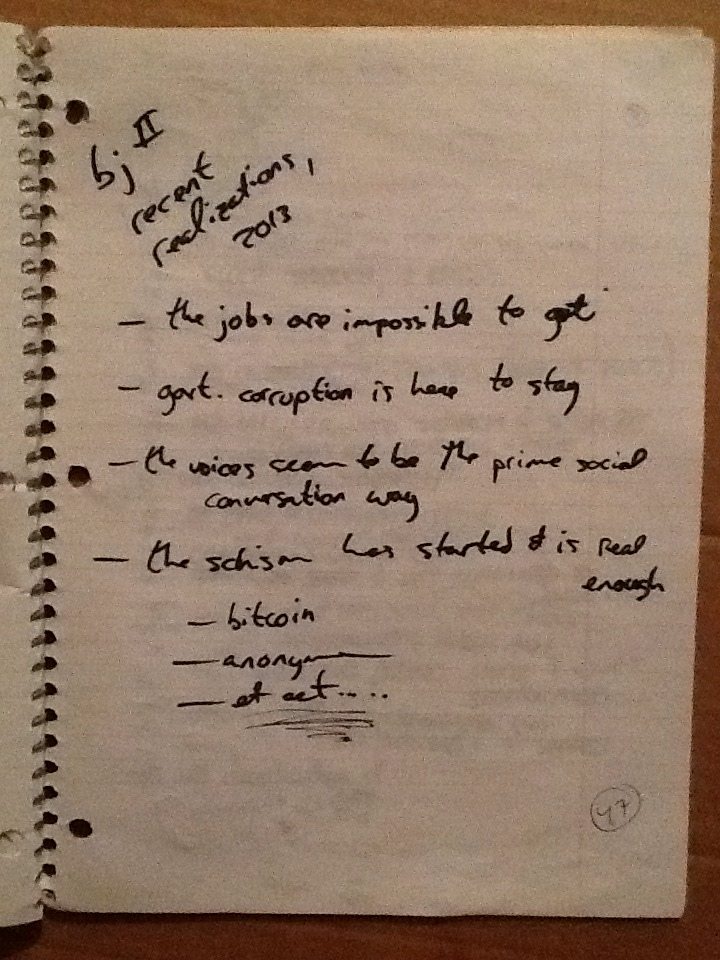 bj II
recent
realizations,
2013
— the jobs are impossible to get
— govt. corruption is here to stay
— the voices seem to be the prime social
conversation way
— the schism has started & is real
enough
— bitcoin
— anonym
— et cet.....
47